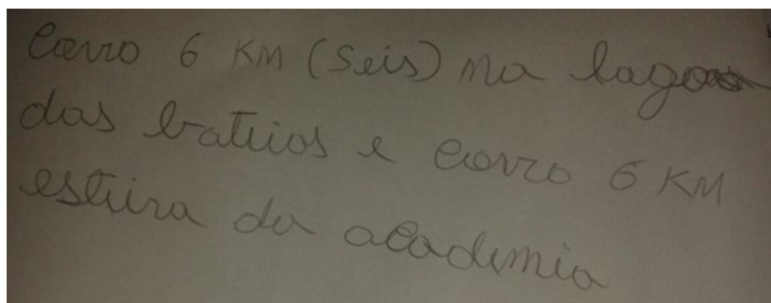 Corro 6 KM (Seis) na lagoa
das bateias e corro 6 KM
esteira da academia